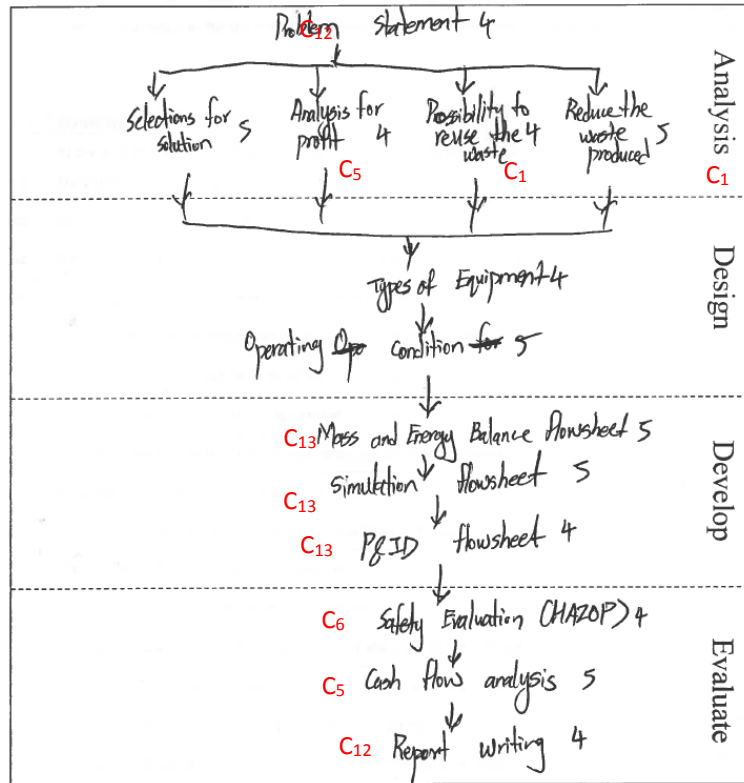 Problem statement 4
C12
Analysis
Selections for solution 5
Analysis for profit 4
Possibility to reuse the 4 waste
Reduce the waste produced 5
C5
C1
C1
Design
Types of Equipment 4
Operating Ope condition for 5
Develop
C13 Mass and Energy Balance flowsheet 5
C13 Simulation flowsheet 5
C13 P&ID flowsheet 4
Evaluate
C6 Safety Evaluation (HAZOP) 4
C5 Cash flow analysis 5
C12 Report writing 4